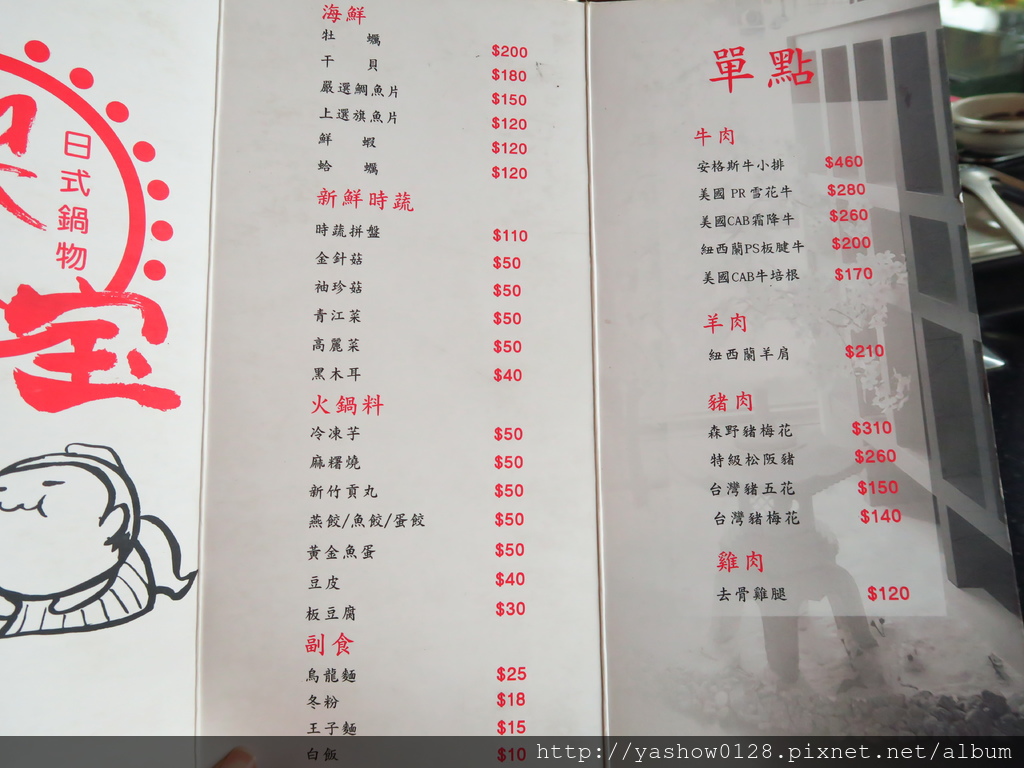 日式鍋物
宝
海鮮
牡 蠣 $200
干 貝 $180
嚴選鯛魚片 $150
上選旗魚片 $120
鮮 蝦 $120
蛤 蠣 $120
新鮮時蔬
時蔬拼盤 $110
金針菇 $50
袖珍菇 $50
青江菜 $50
高麗菜 $50
黑木耳 $40
火鍋料
冷凍芋 $50
麻糬燒 $50
新竹貢丸 $50
燕餃/魚餃/蛋餃 $50
黃金魚蛋 $50
豆皮 $40
板豆腐 $30
副食
烏龍麵 $25
冬粉 $18
王子麵 $15
白飯 $10
單點
牛肉
安格斯牛小排 $460
美國 PR 雪花牛 $280
美國CAB霜降牛 $260
紐西蘭PS板腱牛 $200
美國CAB牛培根 $170
羊肉
紐西蘭羊肩 $210
豬肉
森野豬梅花 $310
特級松阪豬 $260
台灣豬五花 $150
台灣豬梅花 $140
雞肉
去骨雞腿 $120
http://yashow0128.pixnet.net/album